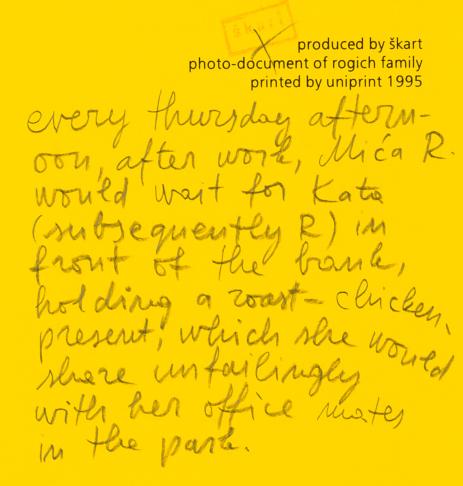 škart
produced by škart
photo-document of rogich family
printed by uniprint 1995
every thursday aftern-
oon, after work, Mića R.
would wait for Kata
(subsequently R) in
front of the bank,
holding a roast-chicken-
present, which she would
share unfailingly
with her office mates
in the park.